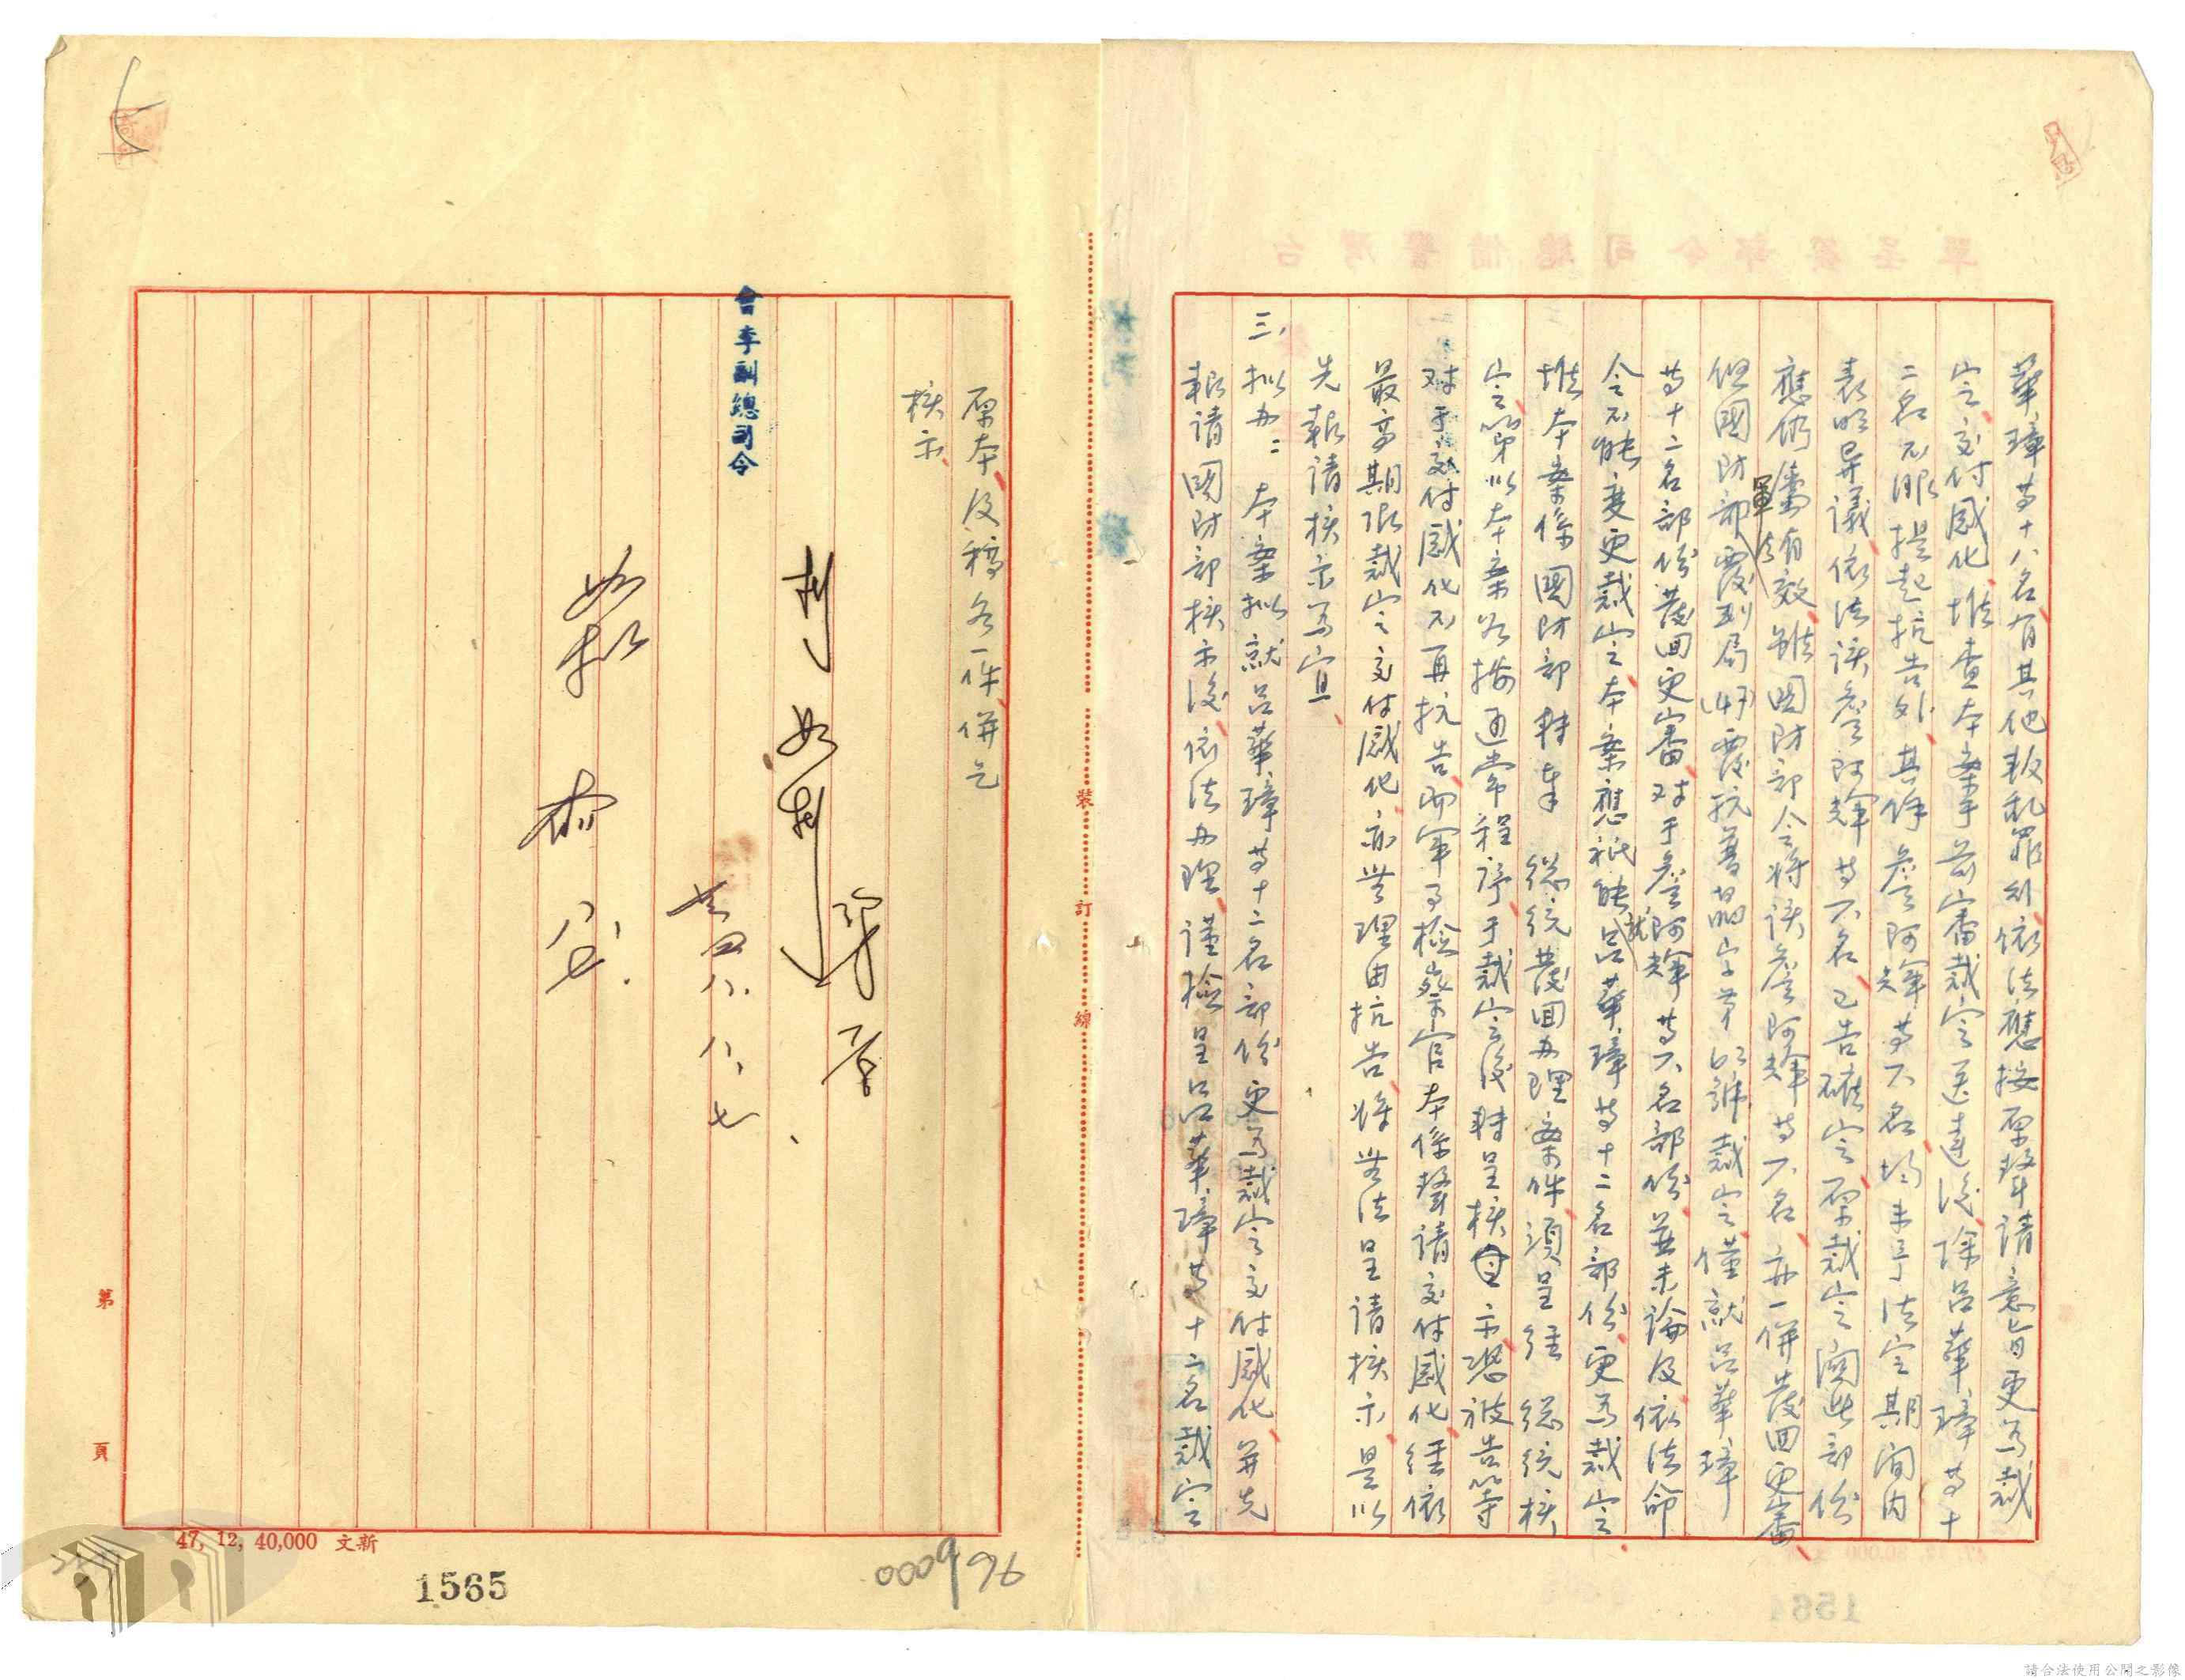 華璋等十八名有其他叛乱罪刑依法應按原聲請意旨更為裁
定交付感化、惟查本案于前審裁定送達後除呂華璋等十
二名不服提起抗告外、其餘詹阿輝等六名均未于法定期間內
表明异議依法該詹阿輝等六名已告確定原裁定關此部份
應仍屬有效雖國防部令將該詹阿輝等六名亦一併發回更審
但國防部軍法覆判局(47)覆抗普晶字第 號裁定僅就呂華璋
等十二名部份發回更審对于詹阿輝等六名部份並未論及依法命
令不能变更裁定本案應祇能就呂華璋等十二名部份更為裁定
惟本案係國防部轉奉 總統發回办理案件須呈經 總統核
定第以本案若按通常程序于裁定後轉呈核 示恐被告等
对于交付感化不再抗告而軍事檢察官本係聲請交付感化経依
最高期限裁定交付感化亦無理由抗告將無法呈請核示、是以
先報請核示為宜
三、拟办：本案拟就呂華璋等十二名部份更為裁定交付感化并先
報請國防部核示後依法办理謹檢呈呂華璋等十二名裁定
原本及稿各一件併乞
核示
判如判
會李副總司令
四八、八、七、
如拟
八、七.
裝
訂
線
第
頁
47, 12, 40,000 文新
1565
000996
1564
台灣警備總司令部簽呈單
請合法使用公開之影像